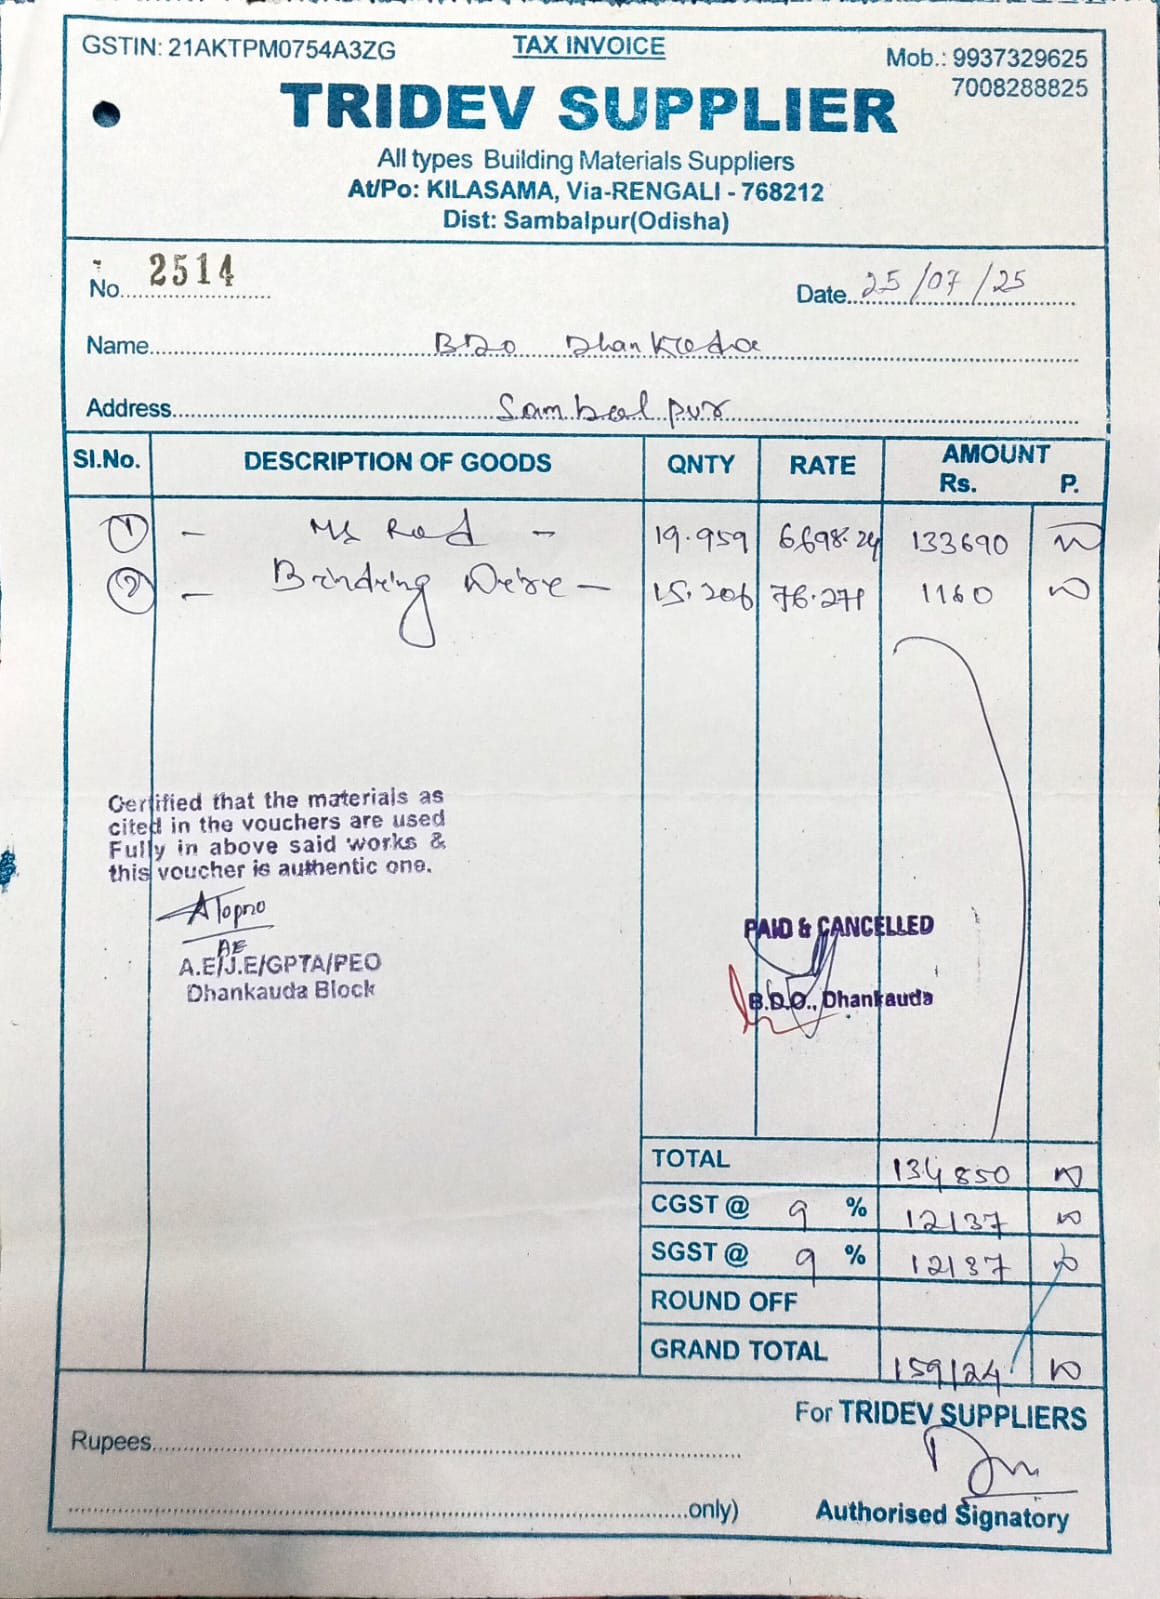 GSTIN: 21AKTPM0754A3ZG
TAX INVOICE
Mob.: 9937329625
7008288825
TRIDEV SUPPLIER
All types Building Materials Suppliers
At/Po: KILASAMA, Via-RENGALI - 768212
Dist: Sambalpur(Odisha)
No. 2514
Date 25/07/25
Name BDO Dhankauda
Address Sambalpur
SI.No. DESCRIPTION OF GOODS QNTY RATE AMOUNT
Rs. P.
1 - MS Rod - 19.959 6698.24 133690
2 - Brindring Weire - 15.206 76.271 1160
Certified that the materials as
cited in the vouchers are used
Fully in above said works &
this voucher is authentic one.
ATopno
AE
A.E/J.E/GPTA/PEO
Dhankauda Block
PAID & CANCELLED
B.D.O., Dhankauda
TOTAL 134850
CGST @ 9 % 12137
SGST @ 9 % 12137
ROUND OFF
GRAND TOTAL 159124
For TRIDEV SUPPLIERS
Rupees
only)
Authorised Signatory